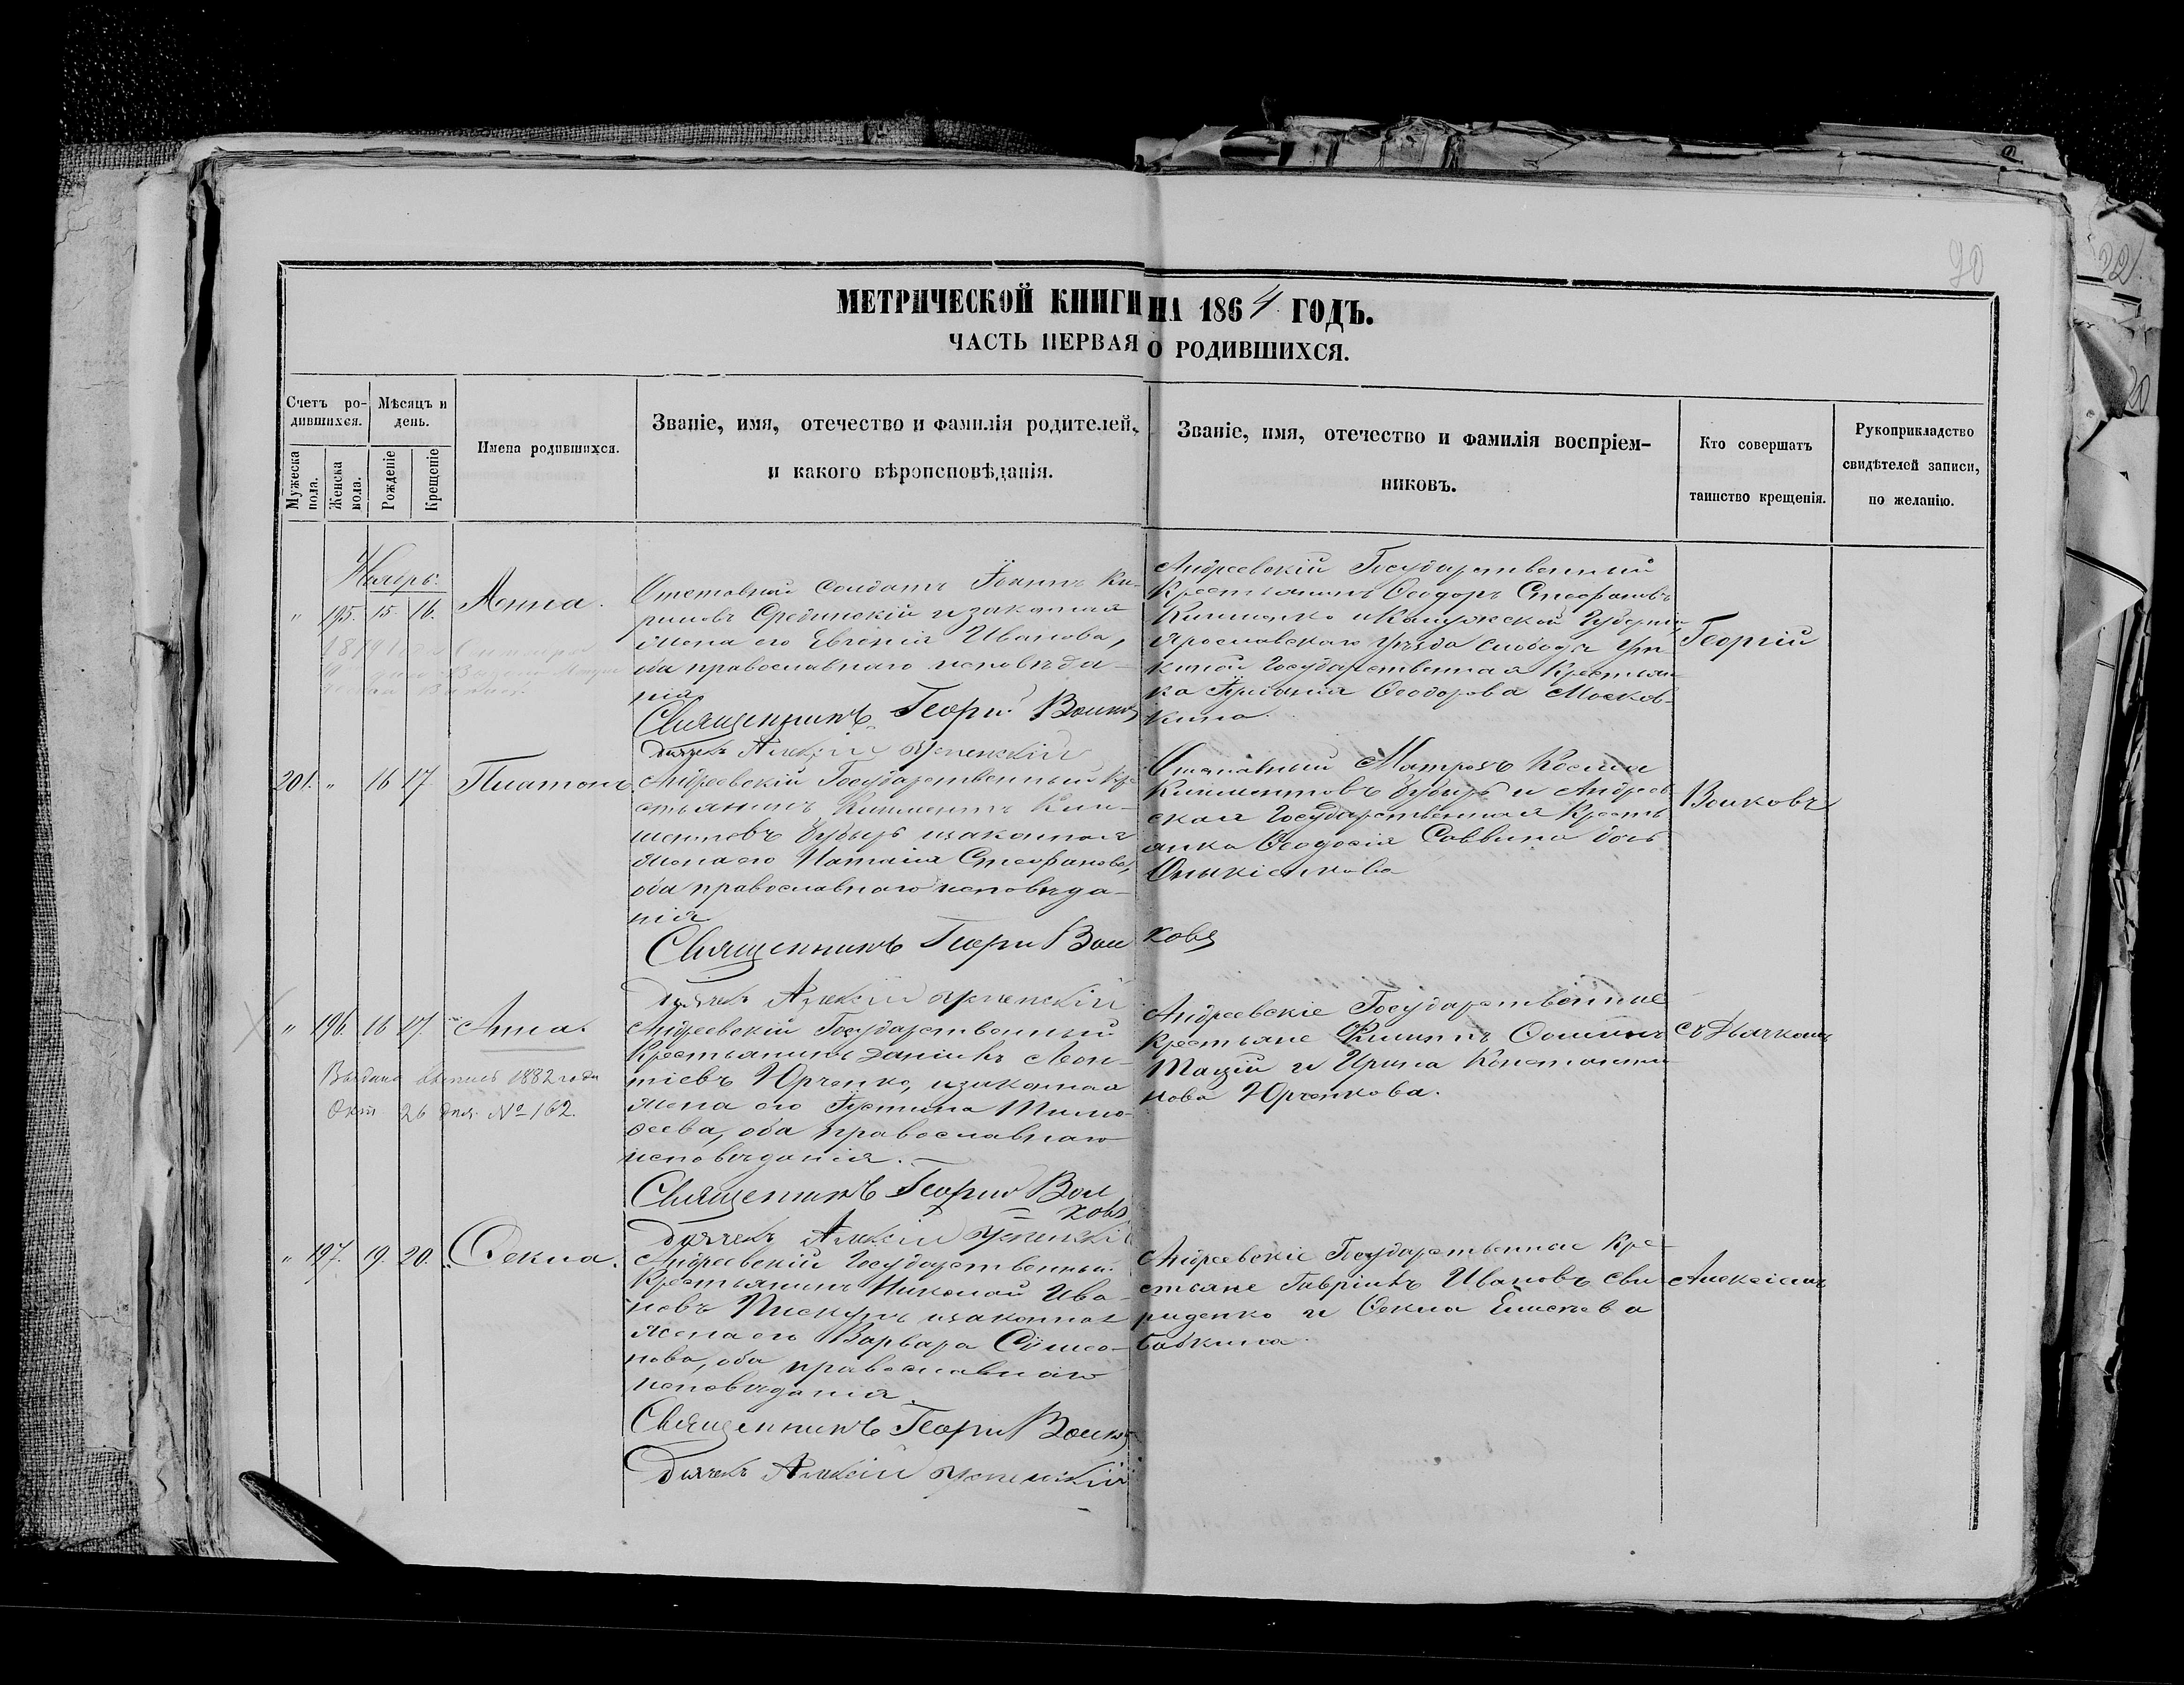 70
22
МЕТРИЧЕСКОЙ КНИГИ НА 1864 ГОДЪ.
ЧАСТЬ ПЕРВАЯ О РОДИВШИХСЯ.
Счетъ ро-
дившихся.
Мужеска
пола.
Женска
пола.
Мѣсяцъ и
день.
Рожденіе
Крещеніе
Имена родившихся.
Званіе, имя, отечество и фамилія родителей,
и какого вѣроисповѣданія.
Званіе, имя, отечество и фамилія воспріем-
никовъ.
Кто совершатъ
таинство крещенія.
Рукоприкладство
свидѣтелей записи,
по желанію.
Ноябрь.
" 195. 15. 16. Анна.
Отставной солдатъ Іоаннъ Ки-
риловъ Срединскій и законная
жена его Евгенія Иванова,
оба православнаго исповѣда-
нія
Священникъ Георгій Волковъ
Дьячекъ Алексій Успенскій
Андреевскій Государственный
Крестьянинъ Ѳеодоръ Стефановъ
Губерніи
Ярославскаго уѣзда слободы
Государственная Крестьян-
ка Ѳеодорова Москов-
кина.
Георгій
201. " 16 17 Платонъ.
Андреевскій Государственный Кре-
стьянинъ Климентъ Кли-
ментовъ Бубырь и законная
жена его Наталія Стефанова,
оба православнаго исповѣда-
нія
Священникъ Георгій Волковъ
Дьячекъ Алексій Успенскій
Отставный Матрозъ Косма
Климентовъ Бубырь и Андреев-
ская Государственная Кресть-
янка Ѳеодосія Саввина дочь
Волковъ
" 196. 16 17. Анна.
Выдана выпись 1882 года
Окт. 26 дня. № 162.
Андреевскій Государственный
Крестьянинъ Даніилъ Леон-
тіевъ Юрченко, и законная
жена его Іустина Тимо-
ѳеева, оба православнаго
исповѣданія.
Священникъ Георгій Волковъ
Дьячекъ Алексій Успенскій
Андреевскіе Государственные
Крестьяне Филиппъ
и Ирина Константи-
нова Юрченкова.
съ Дьячкомъ
" 197. 19. 20. Ѳекла.
Андреевскій Государственный
Крестьянинъ Николай Ива-
новъ Пискунъ и законная
жена его Варвара Симео-
нова, оба православнаго
исповѣданія.
Священникъ Георгій Волковъ
Дьячекъ Алексій Успенскій
Андреевскіе Государственные Кре-
стьяне Гавріилъ Ивановъ Сви-
риденко и Ѳекла Елисѣева
Бабкина.
Алексіемъ